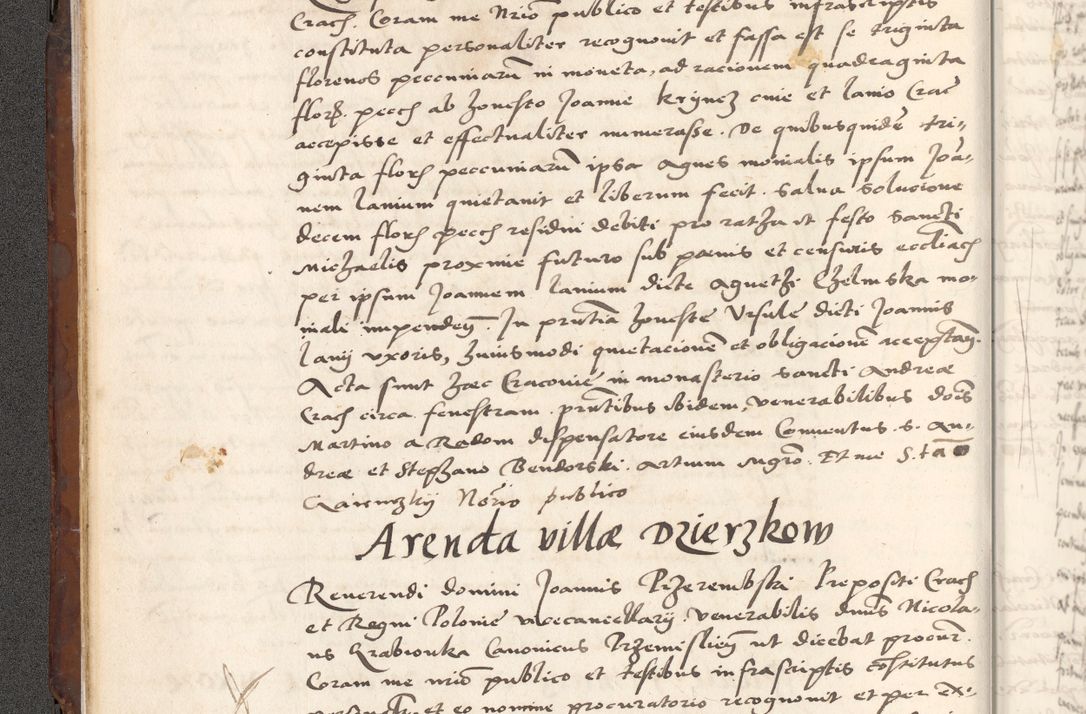 Crach. Coram me Nrio publico et testibus infrascriptis
constituta personaliter recognouit et fassa est se triginta
florenos peccuniarũ in moneta, ad racionem quadraginta
flor. pecch ab honesto Joanne Kryncz ciue et lanio Crac
accepisse et effectualiter numerasse. De quibusquidẽ tri-
ginta florh peccuniarũ ipsa Agnes monialis ipsum Joã-
nem lanium quietauit et liberum fecit. Salua solucione
decem florh pecch residui debiti pro ratha et festo Sancti
Michaelis proxime futuro sub pœnis et censuris eccliach
per ipsum Joannem lanium dicte Agnethi Chelmska mo-
niali impendeñ. In pñtia honeste Ursule dicti Joannis
lanij uxoris, huiusmodi quietacionẽ et obligacionẽ acceptañ.
Acta sunt hæc Cracouie in monasterio Sancti Andreæ
Crach circa fenestram. pñtibus ibidem, venerabilibus dois
Martino a Radom dispensatore eiusdem Conuentus. S. An-
dreæ et Stephano Bendorski. Artium mgro. Et me S. tão
Nõrio publico
Arenda villæ Dzierzkow
Reuerendi domini Joannis Przerembski Prepositi Crach
et Regni Polonie vicecancellarij. Venerabilis dnus Nicola-
us Grabionka Canonicus Przemislieñ ut dicebat procur.
Coram me nrio publico et testibus infrascriptis cõstitutus
et eo nomine procuratorio recognouit et per ex-